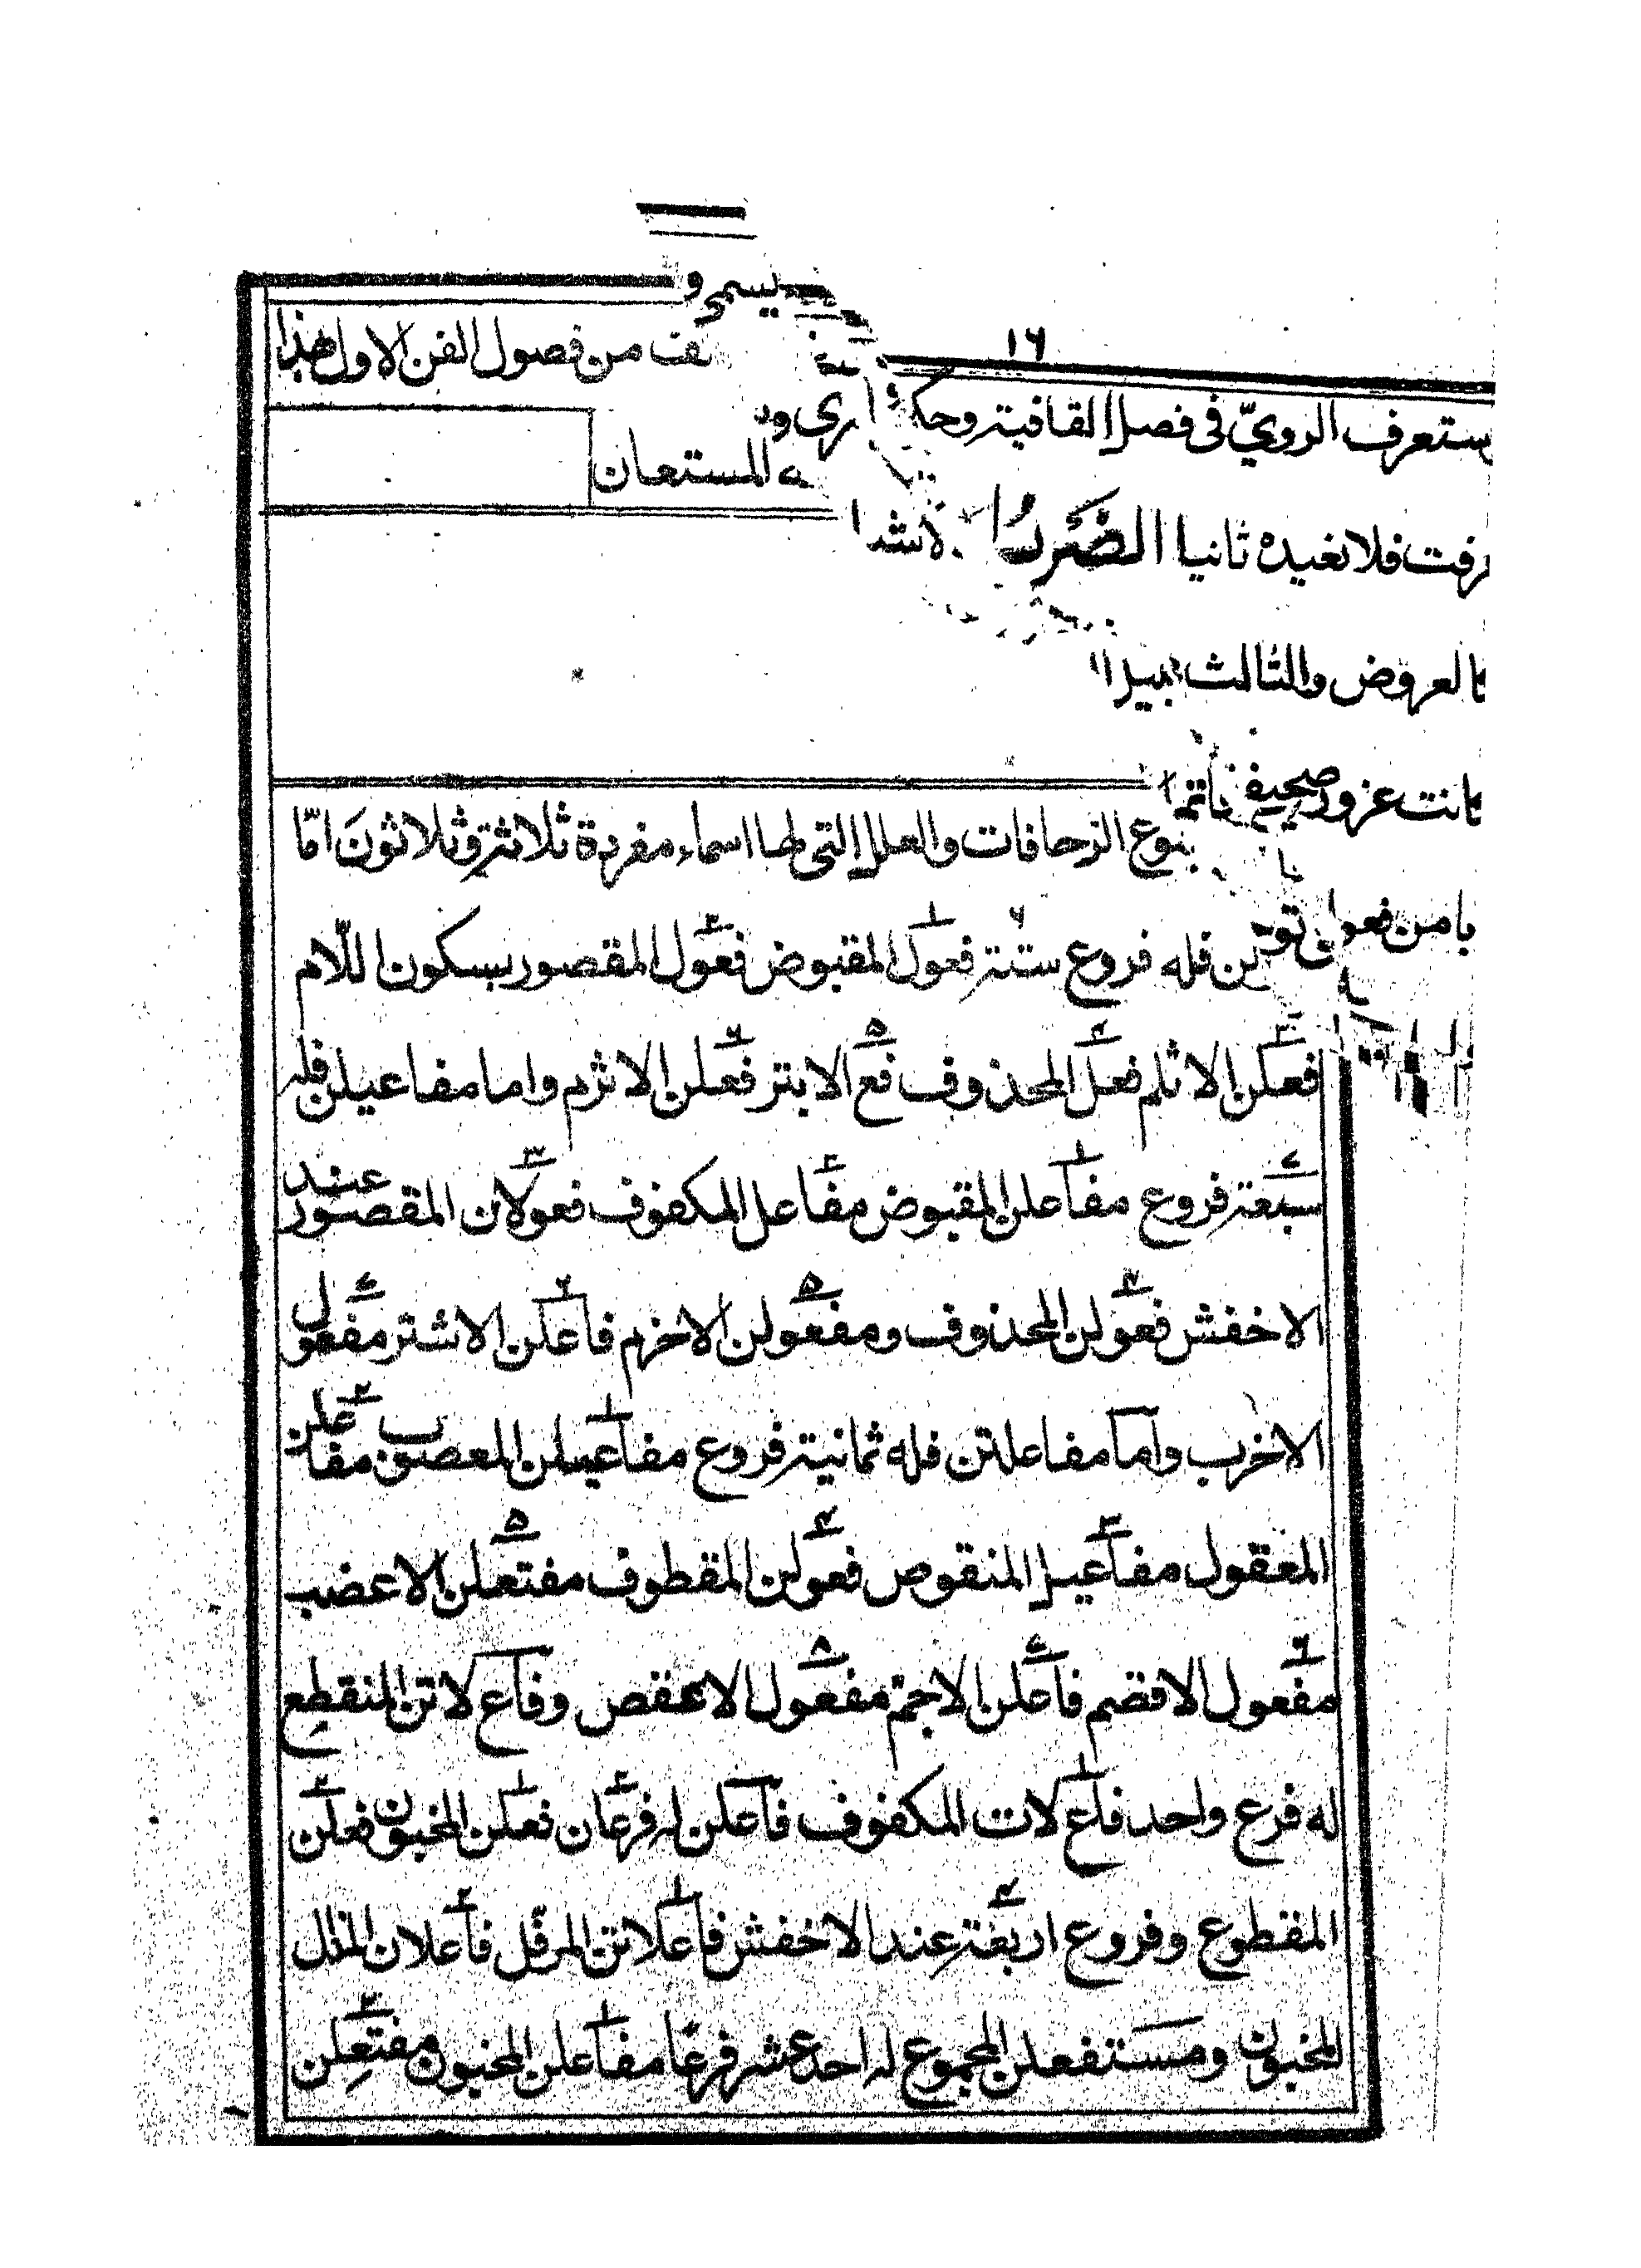 يسمى و
من فصول الفن الاول هذا
المستعان
١٦
ستعرف الروي في فصل القافية وحك
رفت فلا نغيده ثانيا الضرب
العروض والثالث
كانت عزو
فروع الزحافات والعلل التي لها اسماء مفردة ثلاثة وثلاثون امّا
من فعو
لن فله فروع ستة فعول المقبوض فعول المقصور بسكون اللّام
فعلن الاثلم فعل المحذوف فع الابتر فعلن الاثرم واما مفاعيلن فله
سبعة فروع مفاعلن المقبوض مفاعل المكفوف فعولان المقصور عند
الاخفش فعولن المحذوف ومفعولن الاخرم فاعلن الاشتر مفعول
الاخرب واما مفاعلتن فله ثمانية فروع مفاعيلن المعصوب مفاعلن
المعقول مفاعيل المنقوص فعولن المقطوف مفتعلن الاعضب
مفعول الاقصم فاعلن الاجم مفعول الاعقص وفاع لاتن المنقطع
له فرع واحد فاع لات المكفوف فاعلن له فرعان فعلن المخبون فعلن
المقطوع وفروع اربعة عند الاخفش فاعلاتن المرفّل فاعلان المذال
المخبون ومستفعلن المجموع له احد عشر فرعا مفاعلن المخبون مفتعلن